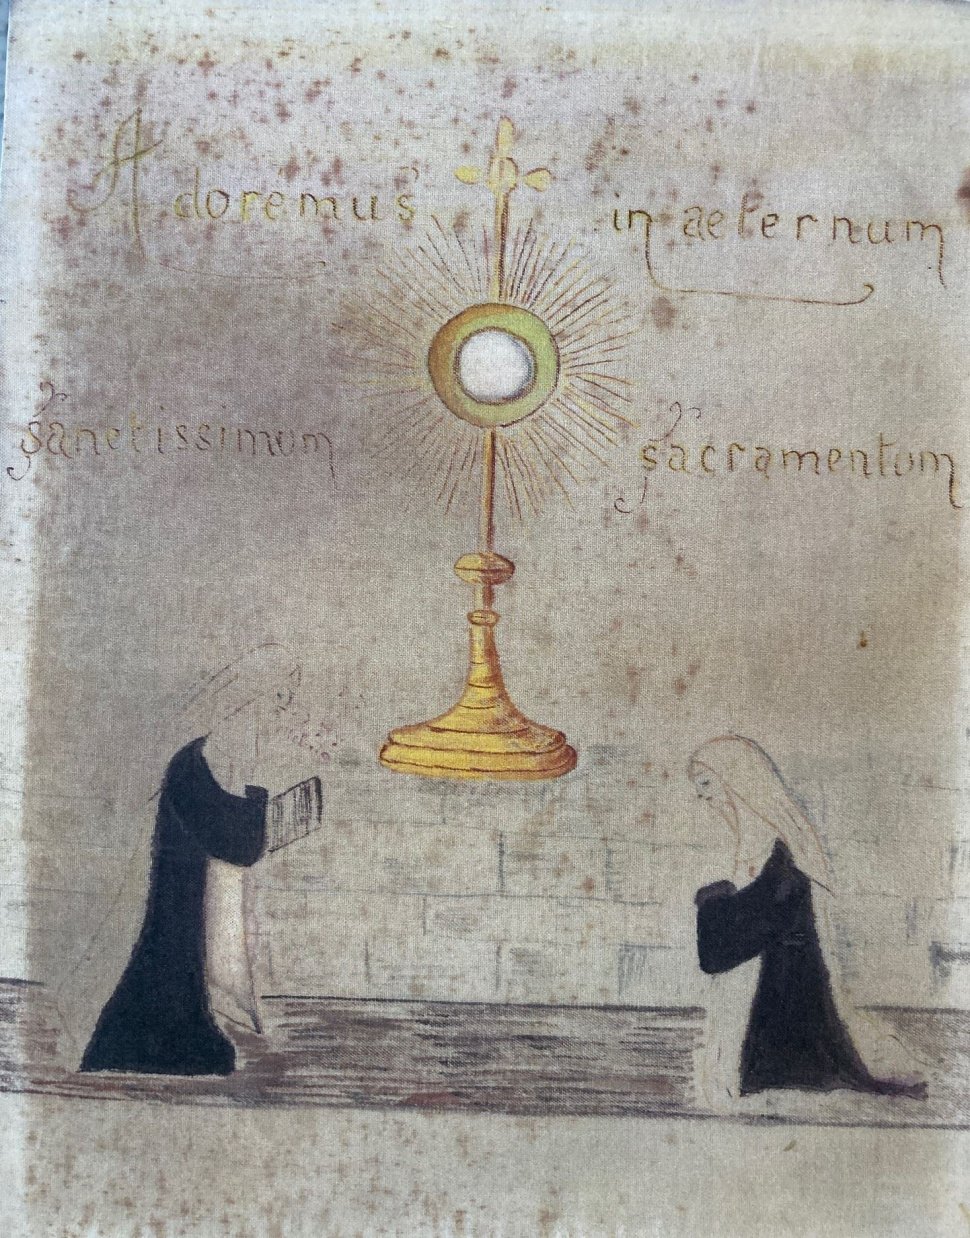 Adoremus in aeternum
Sanctissimum Sacramentum